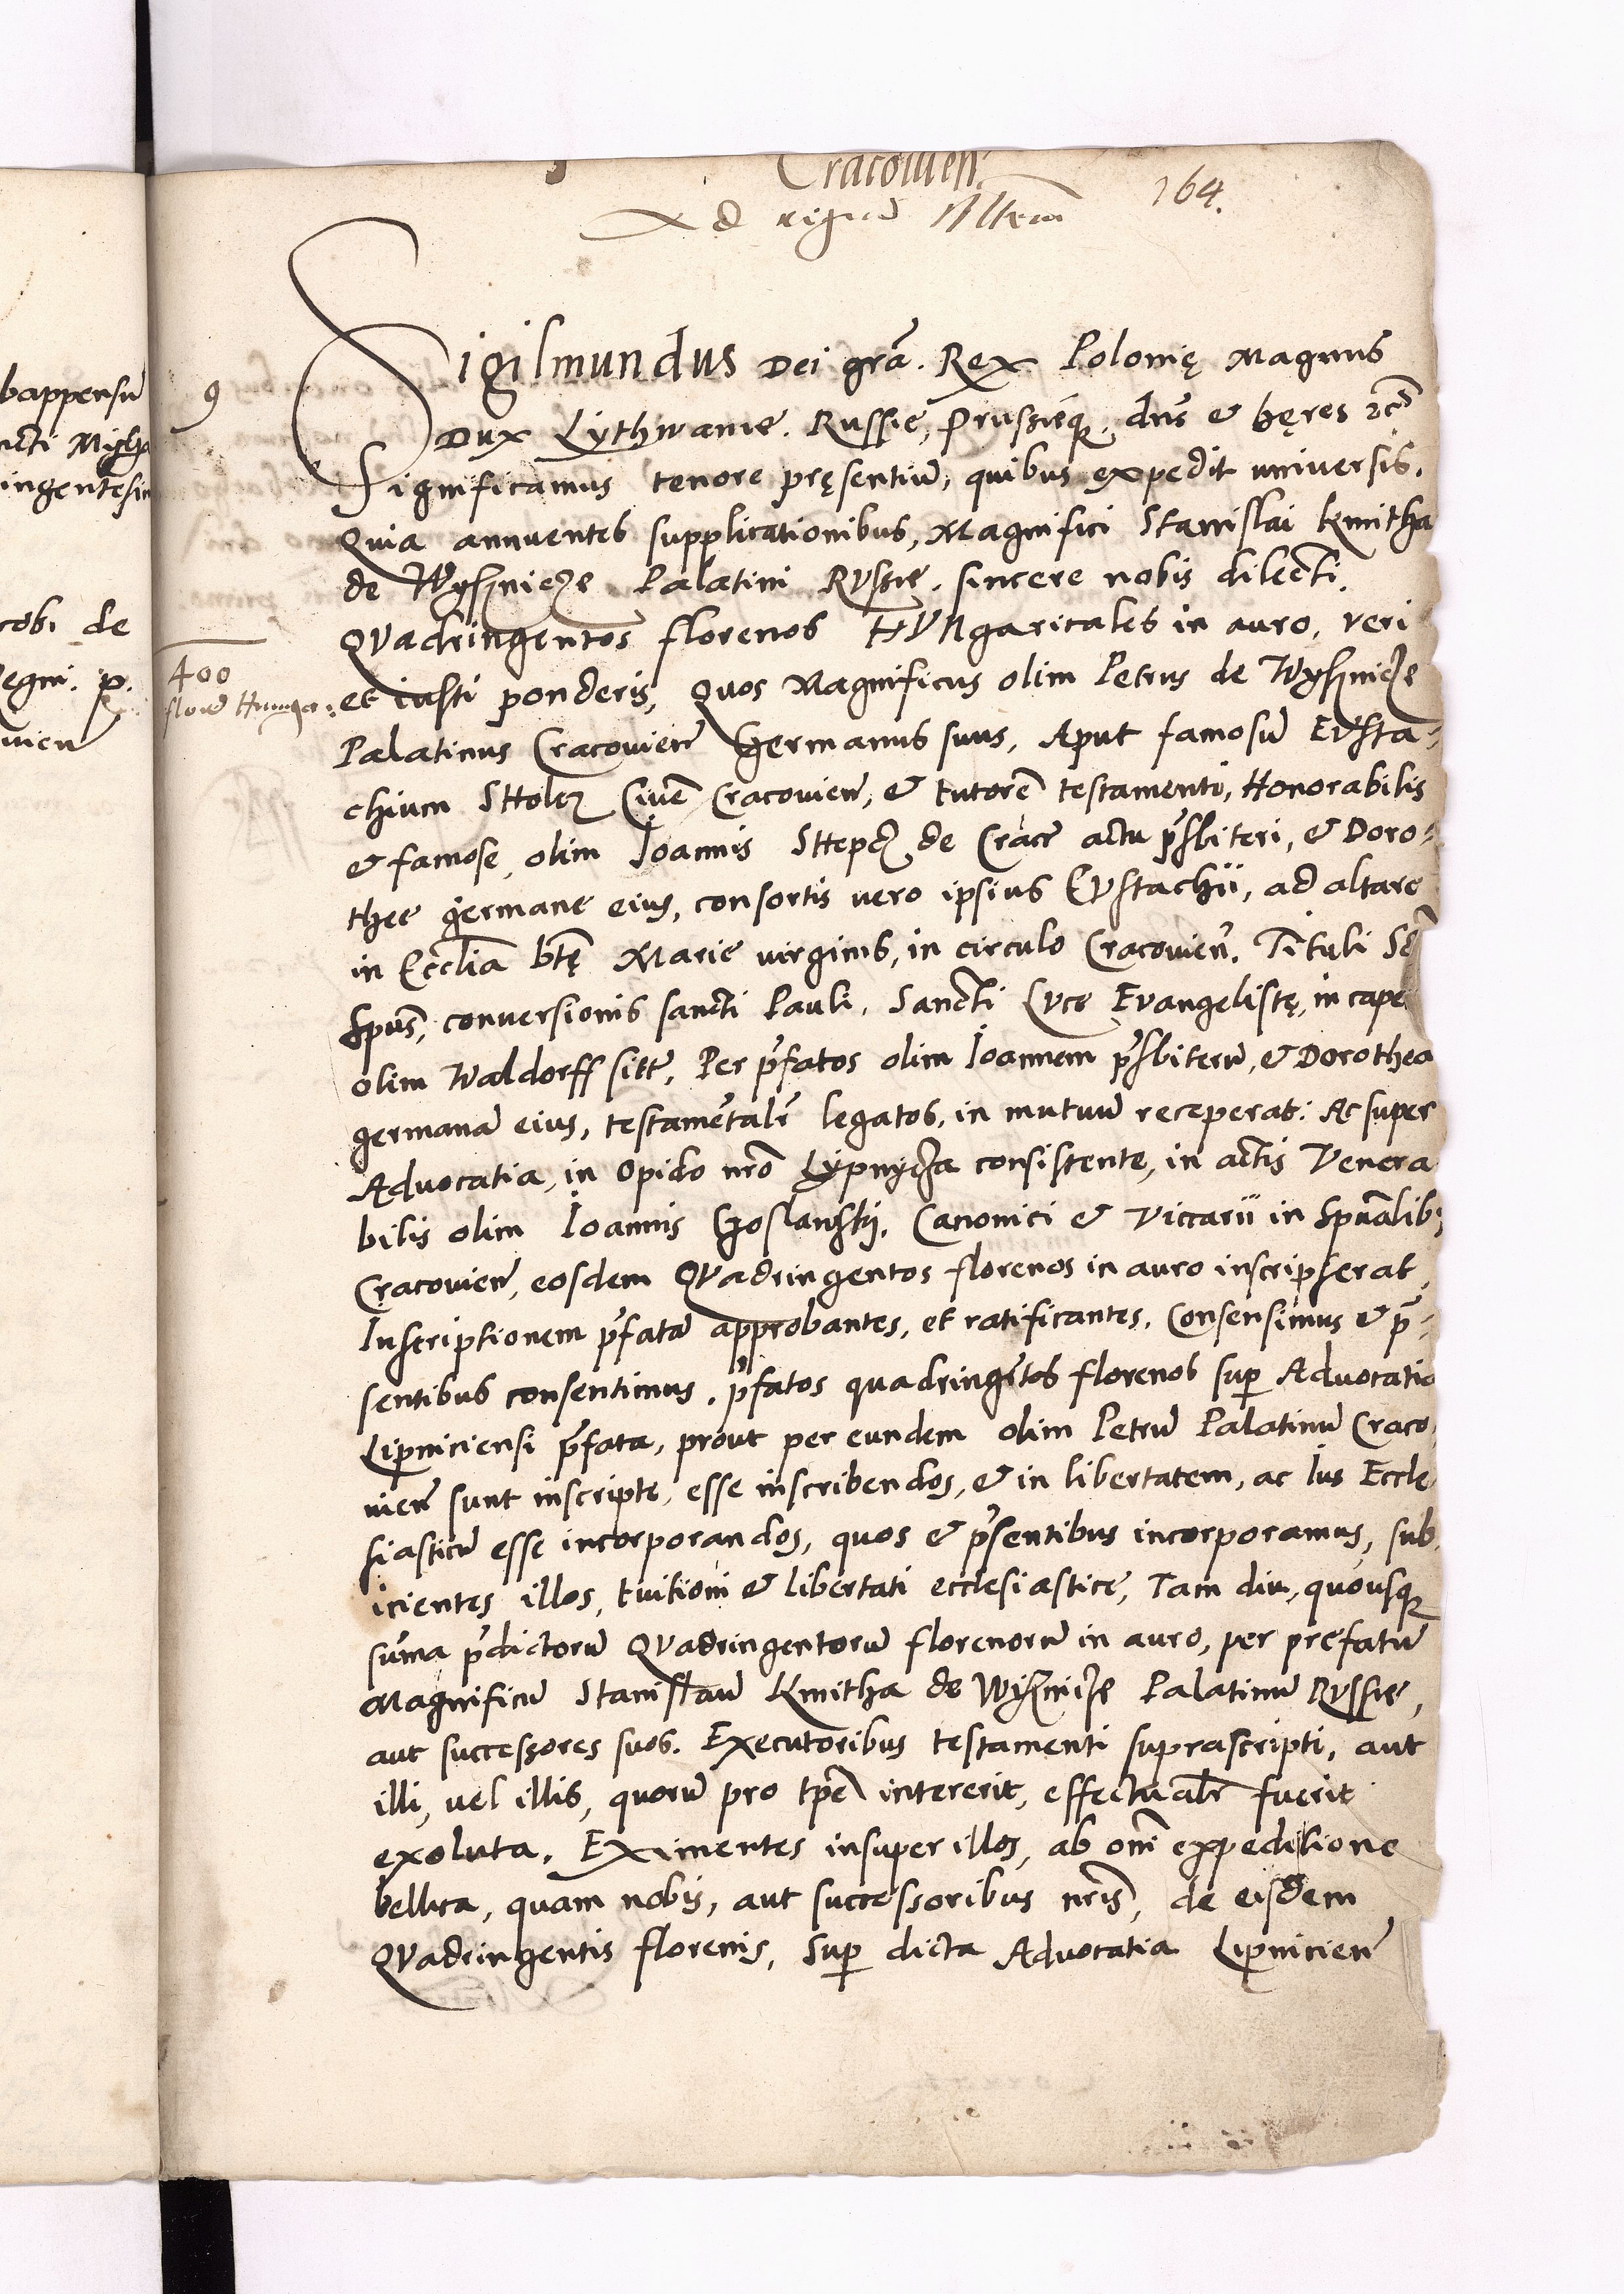 Cracovien̄
Ad
164.
Sigismundus Dei gr̄a. Rex Polonię Magnus
9
Dux Lythwanie. Russie, Prussieq3, dn̄s & hęres 2c̄
Significamus tenore pręsentiū, quibus expedit universis.
Quia annuentes supplicationibus, Magnifici Stanislai Kmitha
de Wyschnicze Palatini Russie. sincere nobis dilecti.
Quadringentos florenos Hungaricales in auro, veri
400
et iusti ponderis, Quos Magnificus olim Petrus de Wyschnicze
Palatinus Cracovien̄ Germanus suus, Aput famosū Eusta-
chium Stholcz Civē Cracovien̄, & tutorē testamenti, Honorabilis
& famose, olim Joannis de Crac̄ actu pr̄sbiteri, & Doro-
thee germane eius, consortis vero ipsius Eustachii, ad altare
in Eccl̄ia bt̄ę Marie virginis, in circulo Cracovien̄. Tituli
Spūs, conversionis sancti Pauli, Sancti Luce Evangelistę, in cape
olim Waldorff sitt̄, Per pr̄fatos olim Joannem pr̄sbiterū, & Dorothea
germanā eius, testamētalr̄ legatos, in mutuū receperat: Ac super
Advocatia, in Opido nr̄o Lypnycza consistente, in actis Venera
bilis olim Joannis Goslansky, Canonici & Viccarii in Spūalib9
Cracovien̄, eosdem Quadringentos florenos in auro inscripserat,
Inscriptionem pr̄fatā approbantes, et ratificantes. Consensimus & p̄-
sentibus consentimus, pr̄fatos quadringētos florenos sup̱ Advocatia
Lipniciensi pr̄fata, prout per eundem olim Petrū Palatinū Craco
vien̄ sunt inscripte, esse inscribendos, & in libertatem, ac Jus Eccle
siasticū esse incorporandos, quos & pr̄sentibus incorporamus, sub
icientes illos, tuitioni & libertati ecclesiastice, Tam diu, quousq3
sūma pr̄dictorū Quadringentorū florenorū in auro, per prefatū
Magnificū Stanislaū Kmitha de Wyschnicze Palatinū Russie,
aut successores suos. Executoribus testamenti suprascripti, aut
illi, vel illis, quorū pro tp̄e intererit, effectualr̄ fuerit
exoluta. Eximentes insuper illos, ab om̄i expeditione
bellica, quam nobis, aut successoribus nr̄is, de eisdem
Quadringentis florenis, sup̱ dicta Advocatia Lipnicien̄